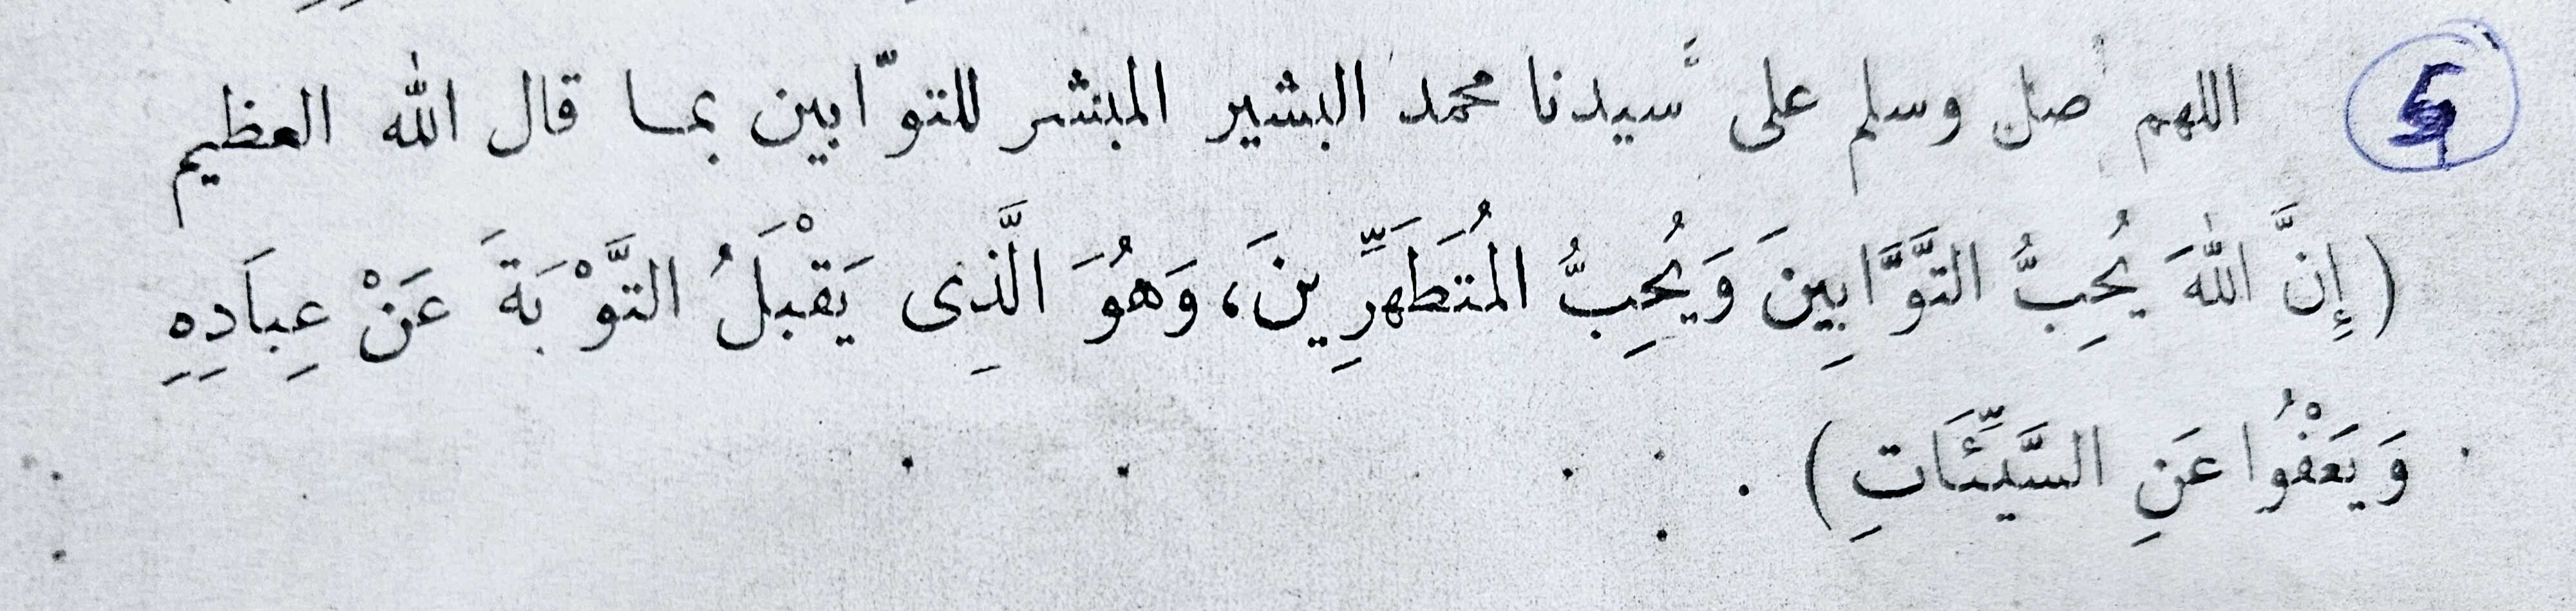 5 اللهم صل وسلم على سيدنا محمد البشير المبشر للتوّابين بما قال الله العظيم
(إِنَّ اللهَ يُحِبُّ التَّوَّابِينَ وَيُحِبُّ الْمُتَطَهِّرِينَ، وَهُوَ الَّذِى يَقْبَلُ التَّوْبَةَ عَنْ عِبَادِهِ
وَيَعْفُوا عَنِ السَّيِّئَاتِ) .